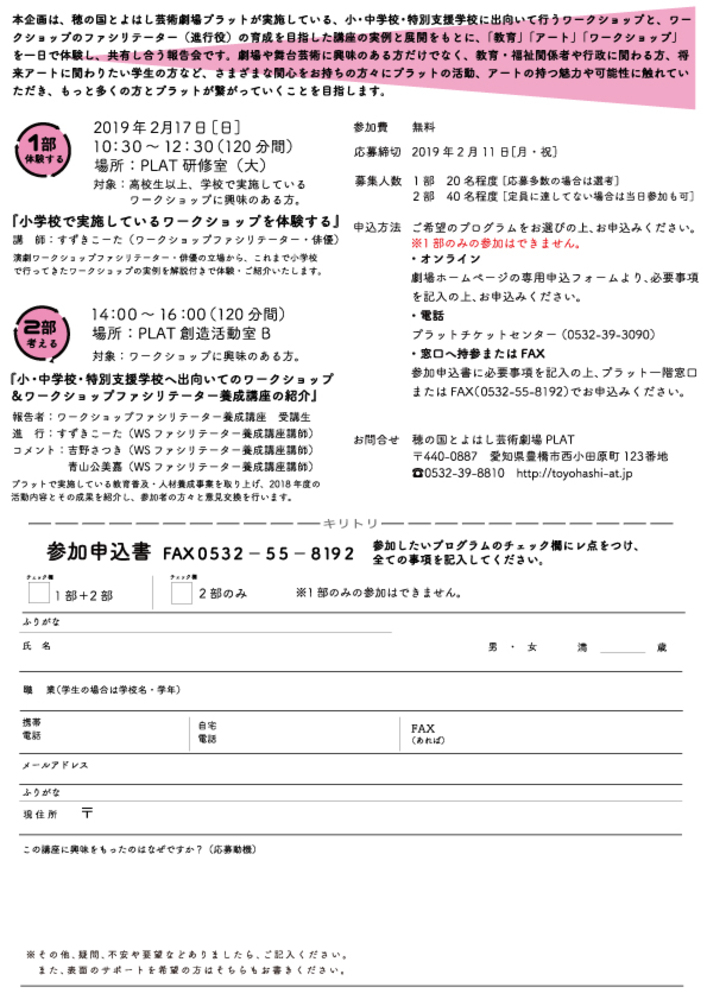 本企画は、穂の国とよはし芸術劇場プラットが実施している、小・中学校・特別支援学校に出向いて行うワークショップと、ワー
クショップのファシリテーター（進行役）の育成を目指した講座の実例と展開をもとに、「教育」「アート」「ワークショップ」
を一日で体験し、共有し合う報告会です。劇場や舞台芸術に興味のある方だけでなく、教育・福祉関係者や行政に関わる方、将
来アートに関わりたい学生の方など、さまざまな関心をお持ちの方々にプラットの活動、アートの持つ魅力や可能性に触れてい
ただき、もっと多くの方とプラットが繋がっていくことを目指します。
1部
体験する
2019年2月17日［日］
10：30～12：30（120分間）
場所：PLAT 研修室（大）
対象：高校生以上、学校で実施している
ワークショップに興味のある方。
『小学校で実施しているワークショップを体験する』
講　師：すずきこーた（ワークショップファシリテーター・俳優）
演劇ワークショップファシリテーター・俳優の立場から、これまで小学校
で行ってきたワークショップの実例を解説付きで体験・ご紹介いたします。
2部
考える
14：00～16：00（120分間）
場所：PLAT 創造活動室 B
対象：ワークショップに興味のある方。
『小・中学校・特別支援学校へ出向いてのワークショップ
＆ワークショップファシリテーター養成講座の紹介』
報告者：ワークショップファシリテーター養成講座　受講生
進　行：すずきこーた（WSファシリテーター養成講座講師）
コメント：吉野さつき（WSファシリテーター養成講座講師）
青山公美嘉（WSファシリテーター養成講座講師）
プラットで実施している教育普及・人材養成事業を取り上げ、2018年度の
活動内容とその成果を紹介し、参加者の方々と意見交換を行います。
参加費　無料
応募締切　2019年2月11日［月・祝］
募集人数　1部　20名程度［応募多数の場合は選考］
2部　40名程度［定員に達してない場合は当日参加も可］
申込方法　ご希望のプログラムをお選びの上、お申込みください。
※1部のみの参加はできません。
・オンライン
劇場ホームページの専用申込フォームより、必要事項
を記入の上、お申込みください。
・電話
プラットチケットセンター（0532-39-3090）
・窓口へ持参またはFAX
参加申込書に必要事項を記入の上、プラット一階窓口
またはFAX（0532-55-8192）でお申込みください。
お問合せ　穂の国とよはし芸術劇場 PLAT
〒440-0887　愛知県豊橋市西小田原町123番地
☎0532-39-8810　http://toyohashi-at.jp
キリトリ
参加申込書 FAX0532－55－8192
参加したいプログラムのチェック欄にレ点をつけ、
全ての事項を記入してください。
チェック欄
1部＋2部
チェック欄
2部のみ
※1部のみの参加はできません。
ふりがな
氏　名
男　・　女　満　歳
職　業（学生の場合は学校名・学年）
携帯
電話
自宅
電話
FAX
（あれば）
メールアドレス
ふりがな
現住所　〒
この講座に興味をもったのはなぜですか？（応募動機）
※その他、疑問、不安や要望などありましたら、ご記入ください。
また、表面のサポートを希望の方はそちらもお書きください。